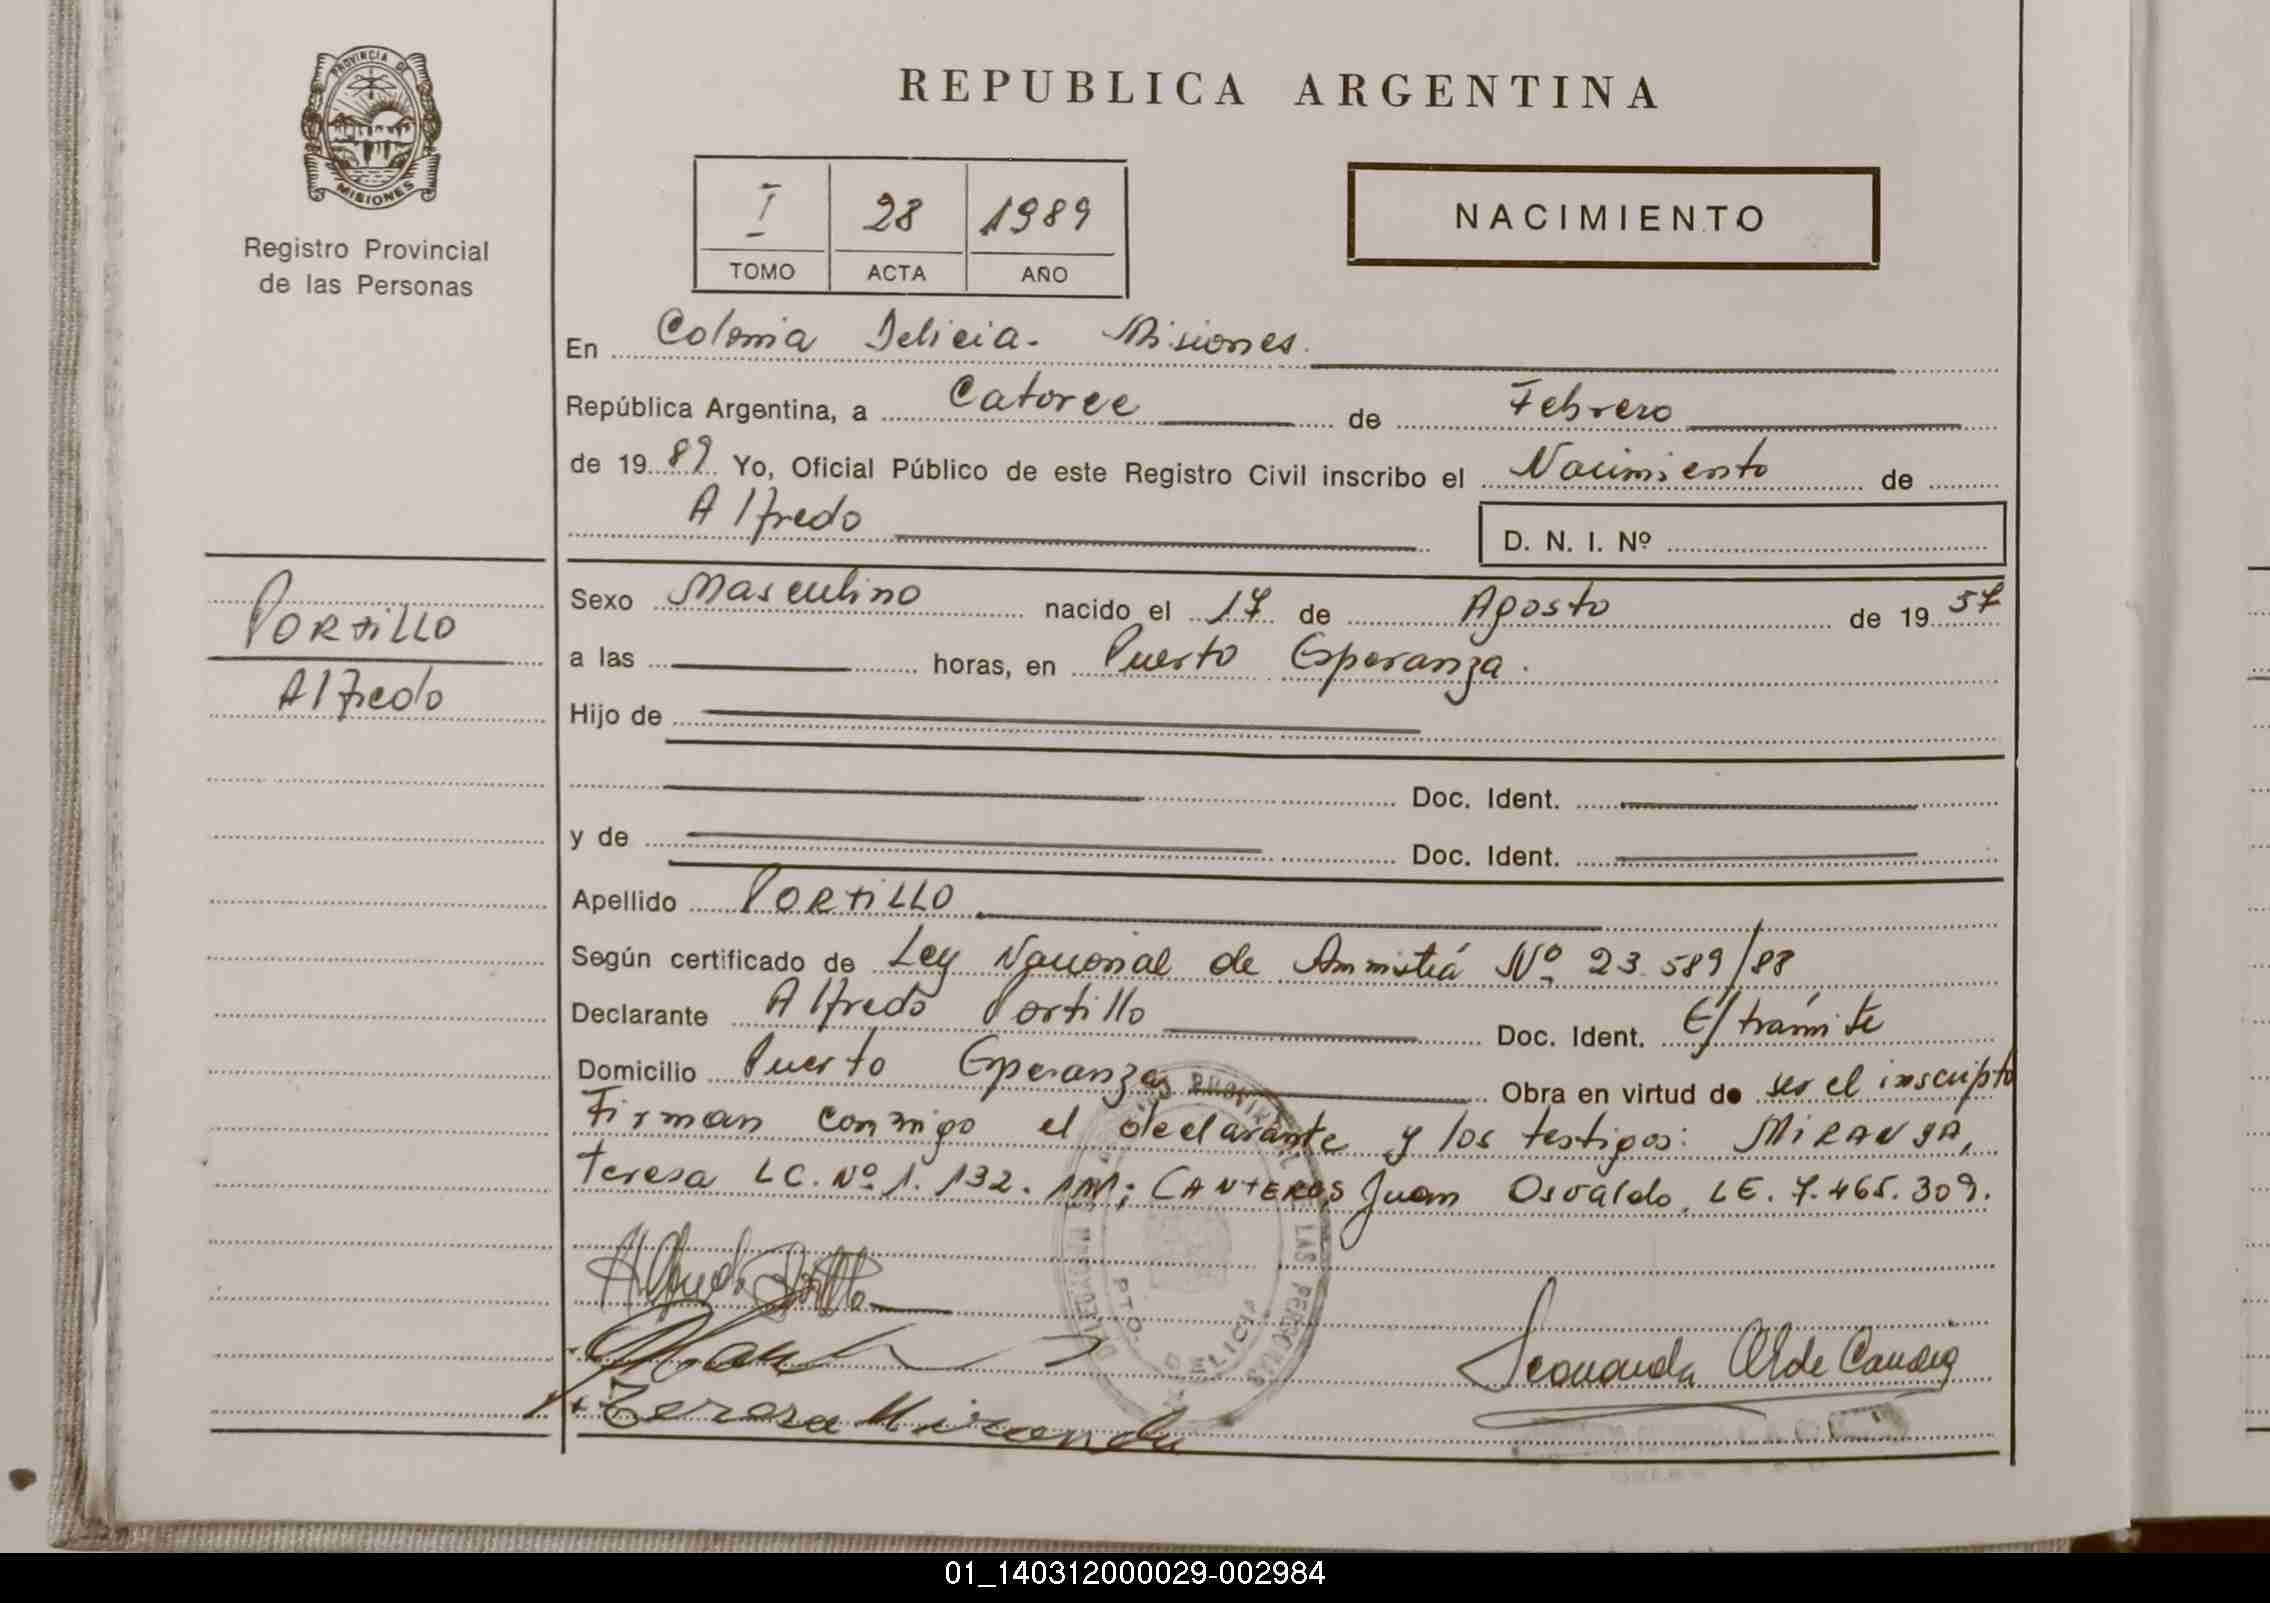 PROVINCIA DE
MISIONES
Registro Provincial
de las Personas
REPUBLICA ARGENTINA
I 28 1989
TOMO ACTA AÑO
NACIMIENTO
En Colonia Delicia. Misiones.
República Argentina, a Catorce de Febrero
de 1989 Yo, Oficial Público de este Registro Civil inscribo el Nacimiento de
Alfredo
D. N. I. Nº
PORTILLO
Alfredo
Sexo Masculino nacido el 17 de Agosto de 1957
a las horas, en Puerto Esperanza.
Hijo de
Doc. Ident.
y de Doc. Ident.
Apellido PORTILLO
Según certificado de Ley Nacional de Amnistiá Nº 23.589/88
Declarante Alfredo Portillo Doc. Ident. E/trámite
Domicilio Puerto Esperanza Obra en virtud de ser el inscripto
Firman conmigo el declarante y los testigos: MIRANDA,
Teresa LC. Nº 1.132. CANTEROS Juan Osvaldo, LE. 7.465.309.
Alfredo Portillo
Teresa Miranda
PTO. DELICIA
LAS PERSONAS
01_140312000029-002984